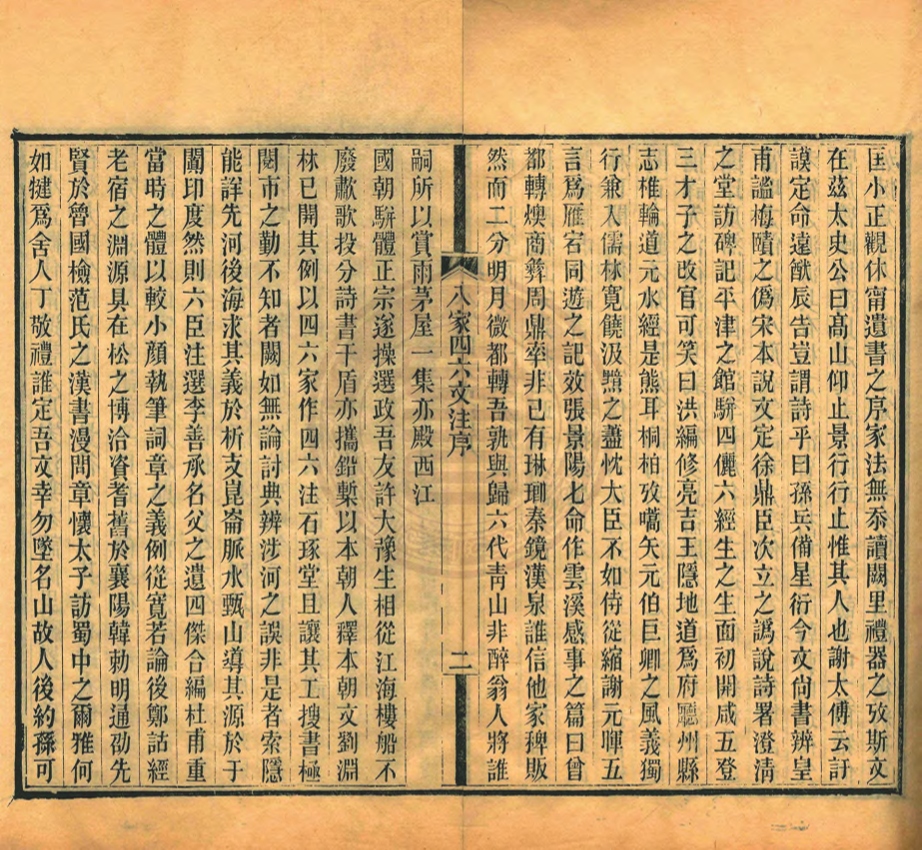 匡小正觀休甯遺書之序家法無忝讀闕里禮器之攷斯文
在茲太史公曰高山仰止景行行止惟其人也謝太傅云訏
謨定命遠猷辰告豈謂詩乎曰孫兵備星衍今文尙書辨皇
甫謐梅賾之僞宋本說文定徐鼎臣次立之譌說詩署澄淸
之堂訪碑記平津之館駢四儷六經生之生面初開咸五登
三才子之改官可笑曰洪編修亮吉王隱地道爲府廳州縣
志椎輪道元水經是熊耳桐柏攷嚆矢元伯巨卿之風義獨
行兼入儒林寬饒汲黯之藎忱大臣不如侍從縮謝元暉五
言爲雁宕同遊之記效張景陽七命作雲溪感事之篇曰曾
都轉燠商彝周鼎率非已有琳瑯秦鏡漢泉誰信他家稗販
然而二分明月微都轉吾孰與歸六代靑山非醉翁人將誰
八家四六文注序
二
嗣所以賞雨茅屋一集亦殿西江
國朝駢體正宗遂操選政吾友許大豫生相從江海樓船不
廢歗歌投分詩書干盾亦攜鉛槧以本朝人釋本朝文劉淵
林已開其例以四六家作四六注石琢堂且讓其工搜書極
閱市之勤不知者闕如無論討典辨涉河之誤非是者索隱
能詳先河後海求其義於析支崑崙脈水甄山導其源於于
闐印度然則六臣注選李善承名父之遺四傑合編杜甫重
當時之體以較小顏執筆詞章之義例從寬若論後鄭詁經
老宿之淵源具在松之博洽資耆舊於襄陽韓勑明通劭先
賢於魯國檢范氏之漢書漫問章懷太子訪蜀中之爾雅何
如犍爲舍人丁敬禮誰定吾文幸勿墜名山故人後約孫可